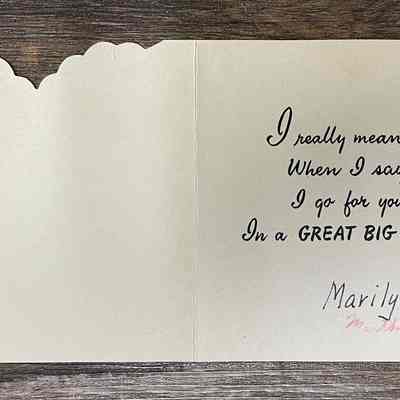 I really mean
When I say
I go for you
In a GREAT BIG
Marily